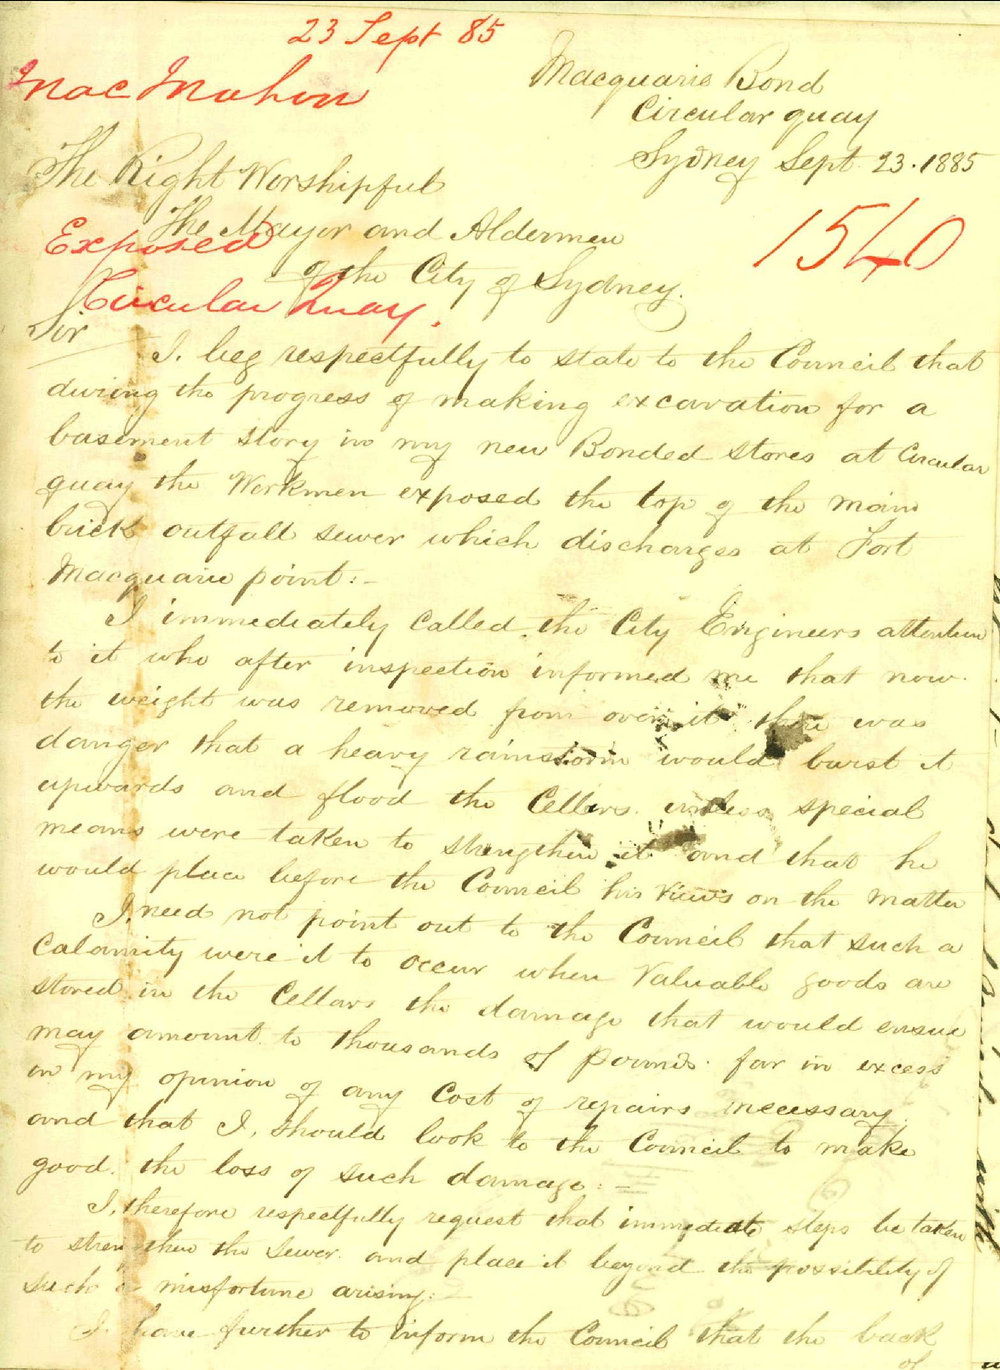 23 Sept 85
Mac Mahon
Macquarie Bond
Circular quay
Sydney Sept 23. 1885
The Right Worshipful
The Mayor and Aldermen
of the City of Sydney.
Exposed
Circular Quay.
1540
Sir
I. beg respectfully to state to the Council that
during the progress of making excavation for a
basement story in my new Bonded stores at Circular
quay the Workmen exposed the top of the main
brick outfall sewer which discharges at Fort
Macquarie point:-
I immediately called the City Engineers attention
to it who after inspection informed me that now
the weight was removed from over it there was
danger that a heavy rainstorm would burst it
upwards and flood the Cellars unless special
means were taken to strengthen it and that he
would place before the Council his views on the matter
I. need not point out to the Council that such a
Calamity were it to occur when Valuable goods are
stored in the Cellars the damage that would ensue
may amount to thousands of pounds far in excess
in my opinion of any Cost of repairs necessary
and that I. should look to the Council to make
good. the loss of such damage:-
I. therefore respectfully request that immediate steps be taken
to strengthen the Sewer and place it beyond the possibility of
such a misfortune arising:-
I. have further to inform the Council that the back
of